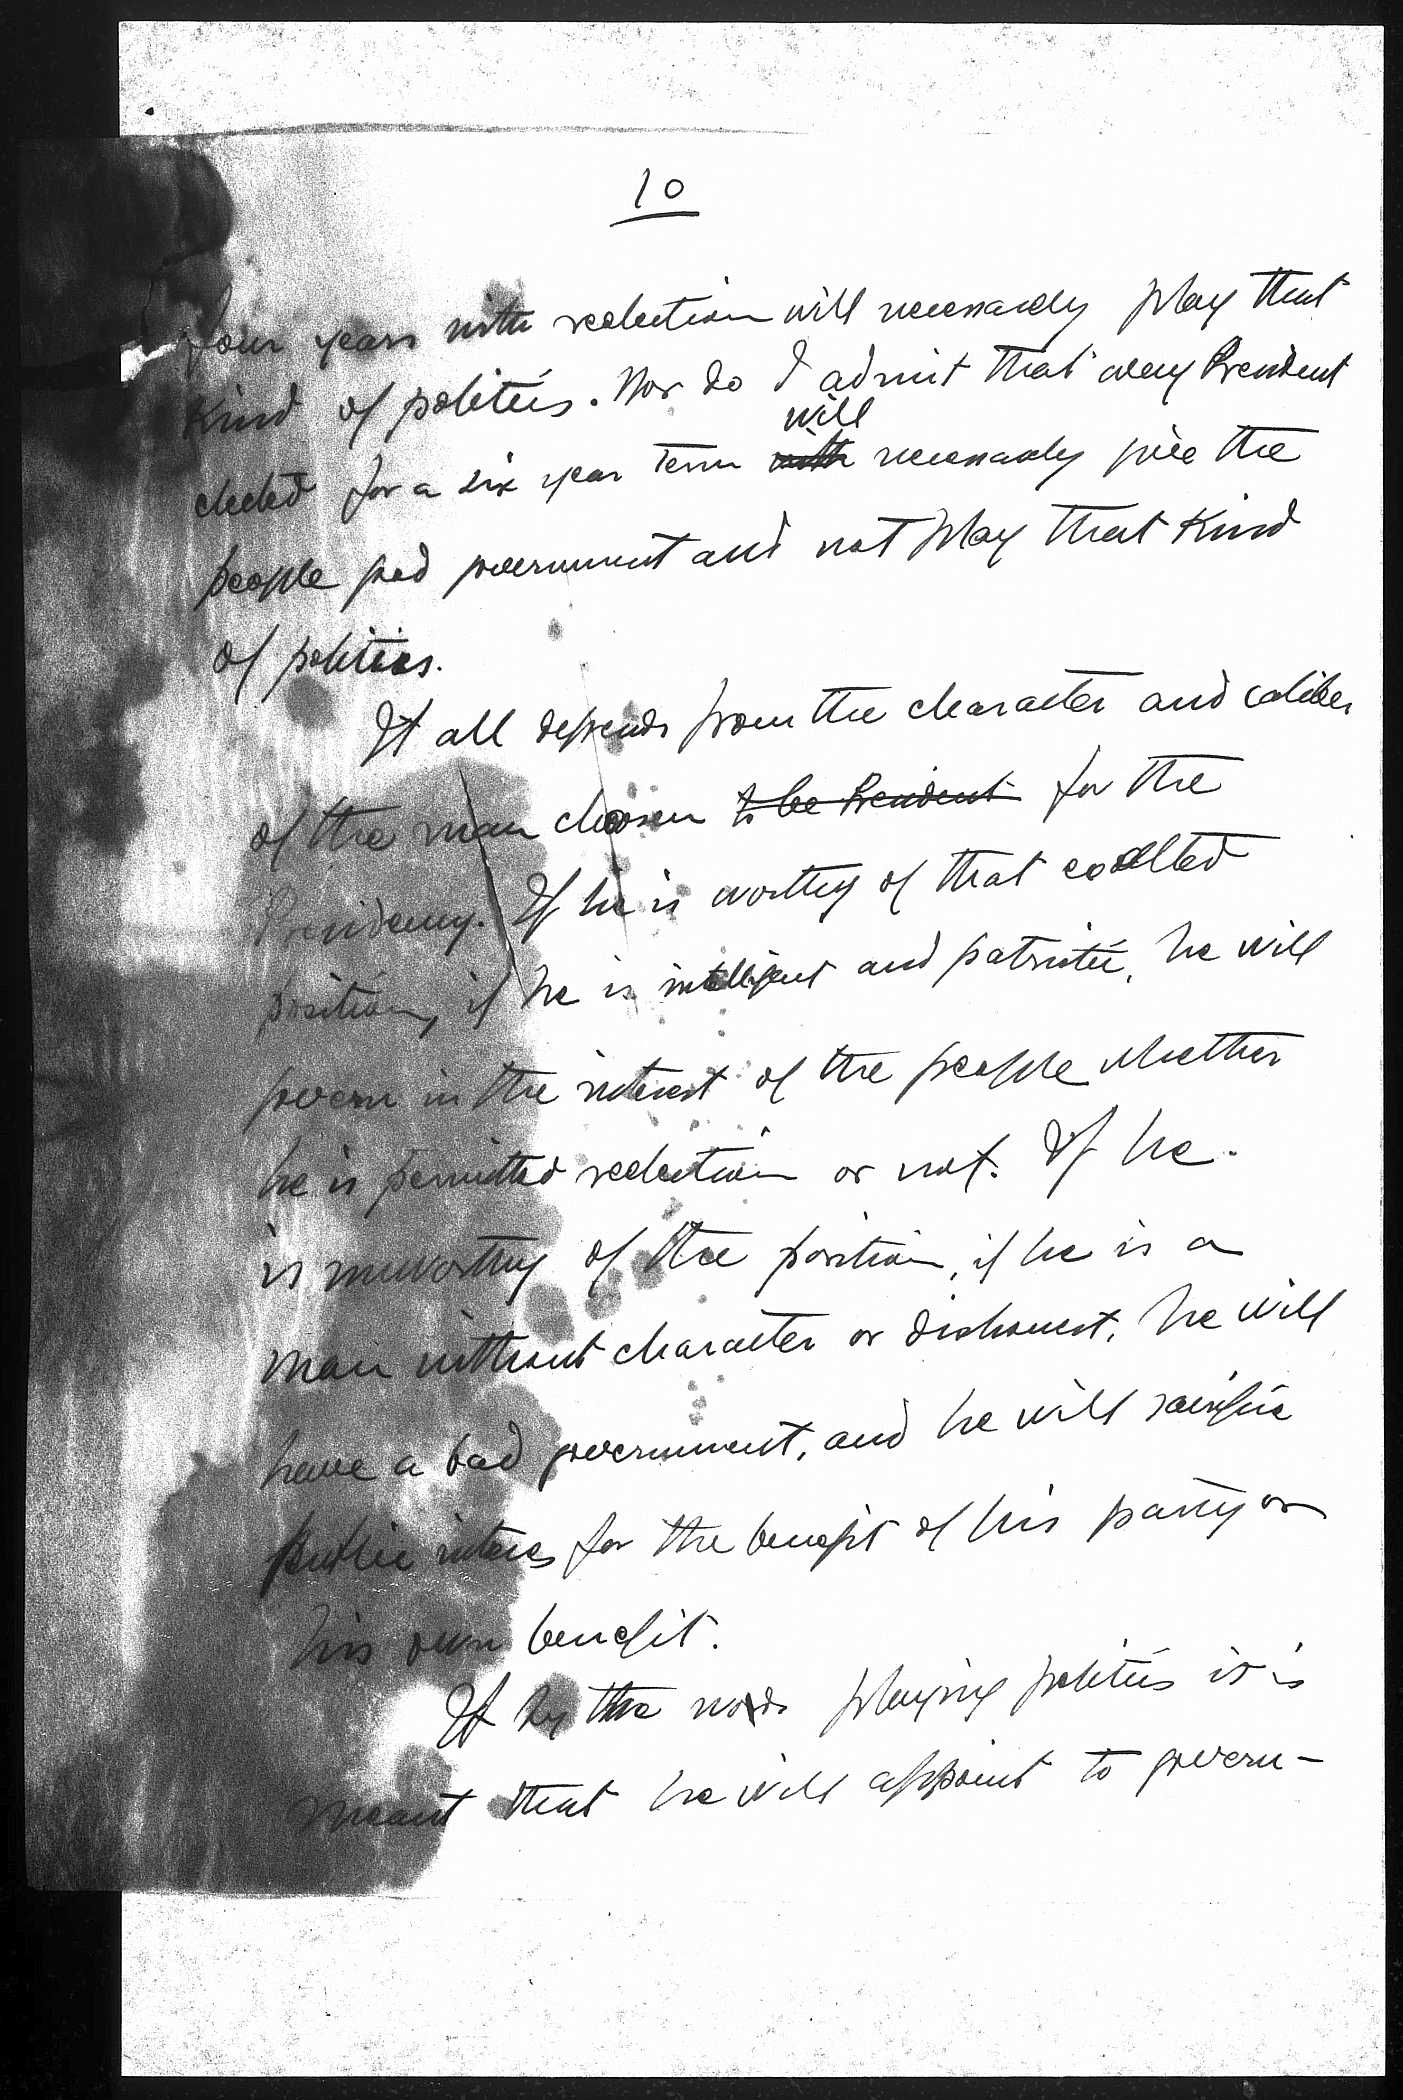 10
four years with reelection will necessarily play that
kind of politics. Nor do I admit that every President
will
elected for a six year term with necessarily give the
people good government and not play that kind
of politics.
It all depends from the character and caliber
of the man chosen to be President for the
Presidency. If he is worthy of that exalted
position, if he is intelligent and patriotic, he will
govern in the interest of the people whether
he is permitted reelection or not. If he
is unworthy of the position, if he is a
man without character or dishonest, he will
have a bad government, and he will sacrifice
public interes for the benefit of his party or
his own benefit.
If by the words playing politics it is
meant that he will appoint to govern-